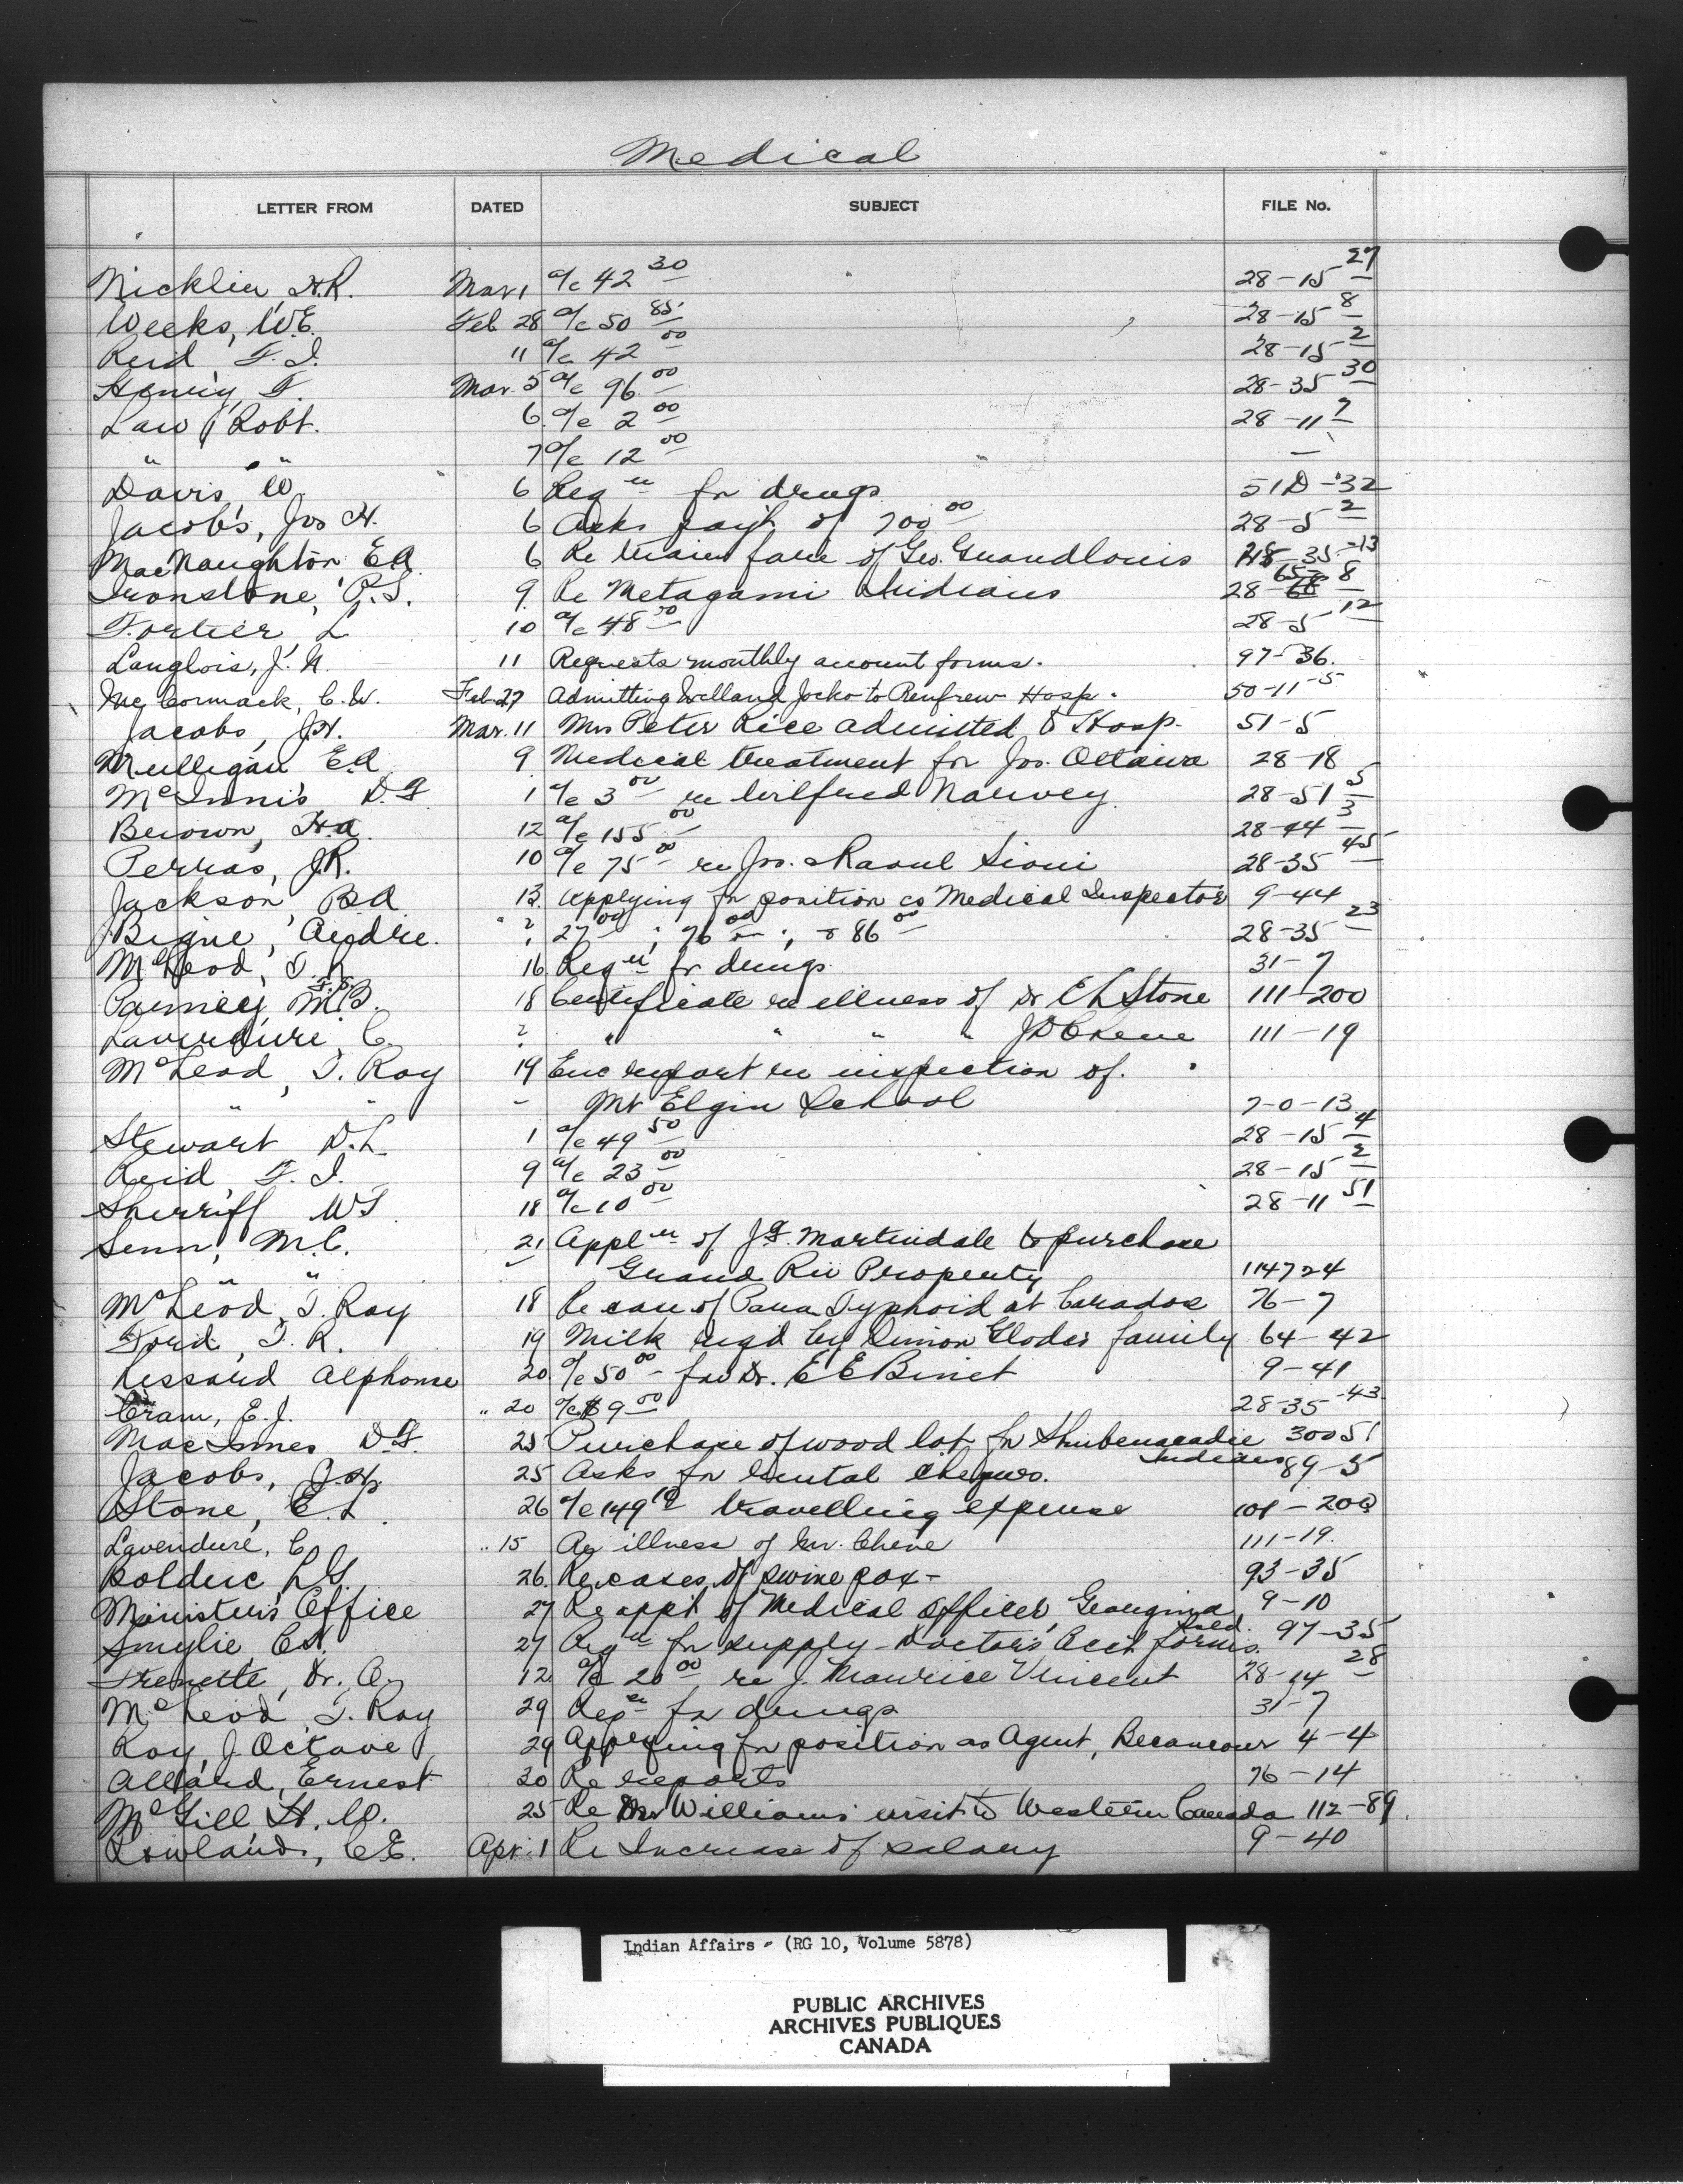 Medical
LETTER FROM DATED SUBJECT FILE No.
Nicklin, H.R. Mar 1 a/c 42 30 28-15 27
Weeks, W.E. Feb 28 a/c 50 85 28-15 8
Reid F.I. 11 a/c 42 00 28-15 2
Henry, F. Mar. 5 a/c 96 00 28-35 30
Law, Robt. 6 a/c 2 00 28-11 7
" " 7 a/c 12 00 —
Davis, W 6 Reqn for drugs 51D-32
Jacobs, Jos H. 6 Asks paym't of 700 00 28-5 2
MacNaughton E.A. 6 Re train fare of Geo. Grandlouis 35-13
Ironstone, P.S. 9 Re Metagami Indians 28- 8
Fortier, L 10 a/c 48 50 28-5 12
Langlois, J.N. 11 Requests monthly account forms. 97-36.
McCormack, C.W. Feb 27 Admitting Welland Jocko to Renfrew Hosp. 50-11-5
Jacobs, J.H. Mar. 11 Mrs Peter Rice admitted to Hosp. 51-5
Mulligan E.A. 9 Medical treatment for Jos. Ottawa 28-18
McInnis, D.F. 1 a/c 3 00 re Wilfred Narvey 28-51 5
Brown, H.A. 12 a/c 155 00 28-44 3
Perras, J.R. 10 a/c 75 00 re Jos. Raoul Sioui 28-35 45
Jackson, B.A. 13 Applying for position as Medical Inspector 9-44
Bigue, Andre. " ? 27 00; 76 00; & 86 00 28-35 23
McLeod, T.R. 16 Reqn for drugs 31-7
Parney, F.S. M.B. 18 Certificate re illness of Dr E L Stone 111-200
Laverdure, C. ? " " " " J D Chene 111-19
McLeod, T. Ray 19 Enc report re inspection of.
" " - Mt Elgin School 7-0-13
Stewart D.L. 1 a/c 49 50 28-15 4
Reid, F.I. 9 a/c 23 00 28-15 2
Sherriff W.S. 18 a/c 10 00 28-11 51
Senn, M.C. 21 Appln of J.F. Martindale to purchase
" " Grand Riv Property 114724
McLeod, T. Ray 18 Re case of Para Typhoid at Caradoc 76-7
Ford, T.R. 19 Milk reqd by Simon Glodes family 64-42
Lessard Alphonse 20 a/c 50 00 for Dr. E E Binet 9-41
Cram, E.J. " 20 a/c $9 00 28-35-43
MacInnes D.F. 25 Purchase of wood lot for Shubenacadie 30051
Indians
Jacobs, J.H. 25 Asks for rental cheques. 89-5
Stone, E.L. 26 a/c 149 10 travelling expense 101-200
Lavendure, C. " 15 Re illness of Mr. Chene 111-19.
Bolduc, L.G. 26. Re cases of swine pox- 93-35
Minister's Office 27 Re appt of Medical Officer, Georgina 9-10
Island.
Smylie, C.A. 27 Reqn for supply-Doctor's Acct forms. 97-35
Frenette, Dr. A. 12 a/c 20 00 re J. Maurice Vincent 28-14 28
McLeod, T. Ray 29 Reqn for drugs 31-7
Roy, J. Octave 29 Applying for position as Agent, Becancour 4-4
Allard, Ernest 30 Re reports 76-14
McGill H.W. 25 Re Dr Williams' visit to Western Canada 112-89.
Rowlands, C.E. Apr. 1 Re Increase of salary 9-40
Indian Affairs - (RG 10, Volume 5878)
PUBLIC ARCHIVES
ARCHIVES PUBLIQUES
CANADA